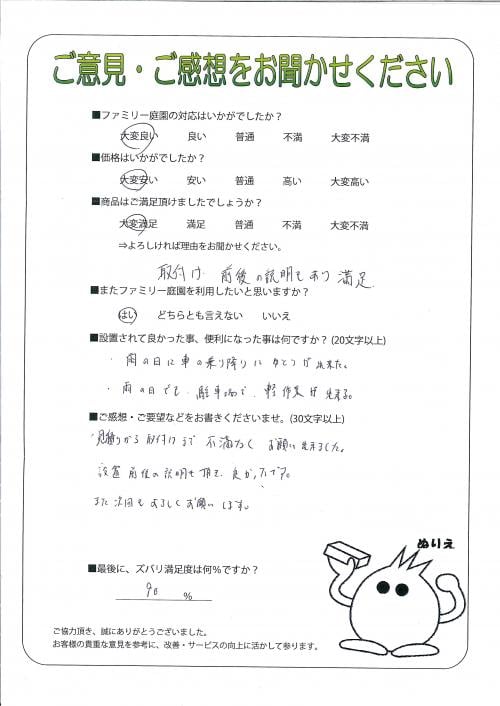 ご意見・ご感想をお聞かせください
■ファミリー庭園の対応はいかがでしたか？
大変良い 良い 普通 不満 大変不満
■価格はいかがでしたか？
大変安い 安い 普通 高い 大変高い
■商品はご満足頂けましたでしょうか？
大変満足 満足 普通 不満 大変不満
⇒よろしければ理由をお聞かせください。
取付け 前後の説明もあり 満足
■またファミリー庭園を利用したいと思いますか？
はい どちらとも言えない いいえ
■設置されて良かった事、便利になった事は何ですか？(20文字以上)
・雨の日に車の乗り降りに ゆとりが出来た。
・雨の日でも、駐車場で、軽作業が出来る。
■ご感想・ご要望などをお書きくださいませ。(30文字以上)
見積りから取付けまで 不満なく お願い出来ました。
設置前後の説明も頂き、良かったです。
また次回もよろしくお願いします。
ぬりえ
■最後に、ズバリ満足度は何％ですか？
90 ％
ご協力頂き、誠にありがとうございました。
お客様の貴重な意見を参考に、改善・サービスの向上に活かして参ります。